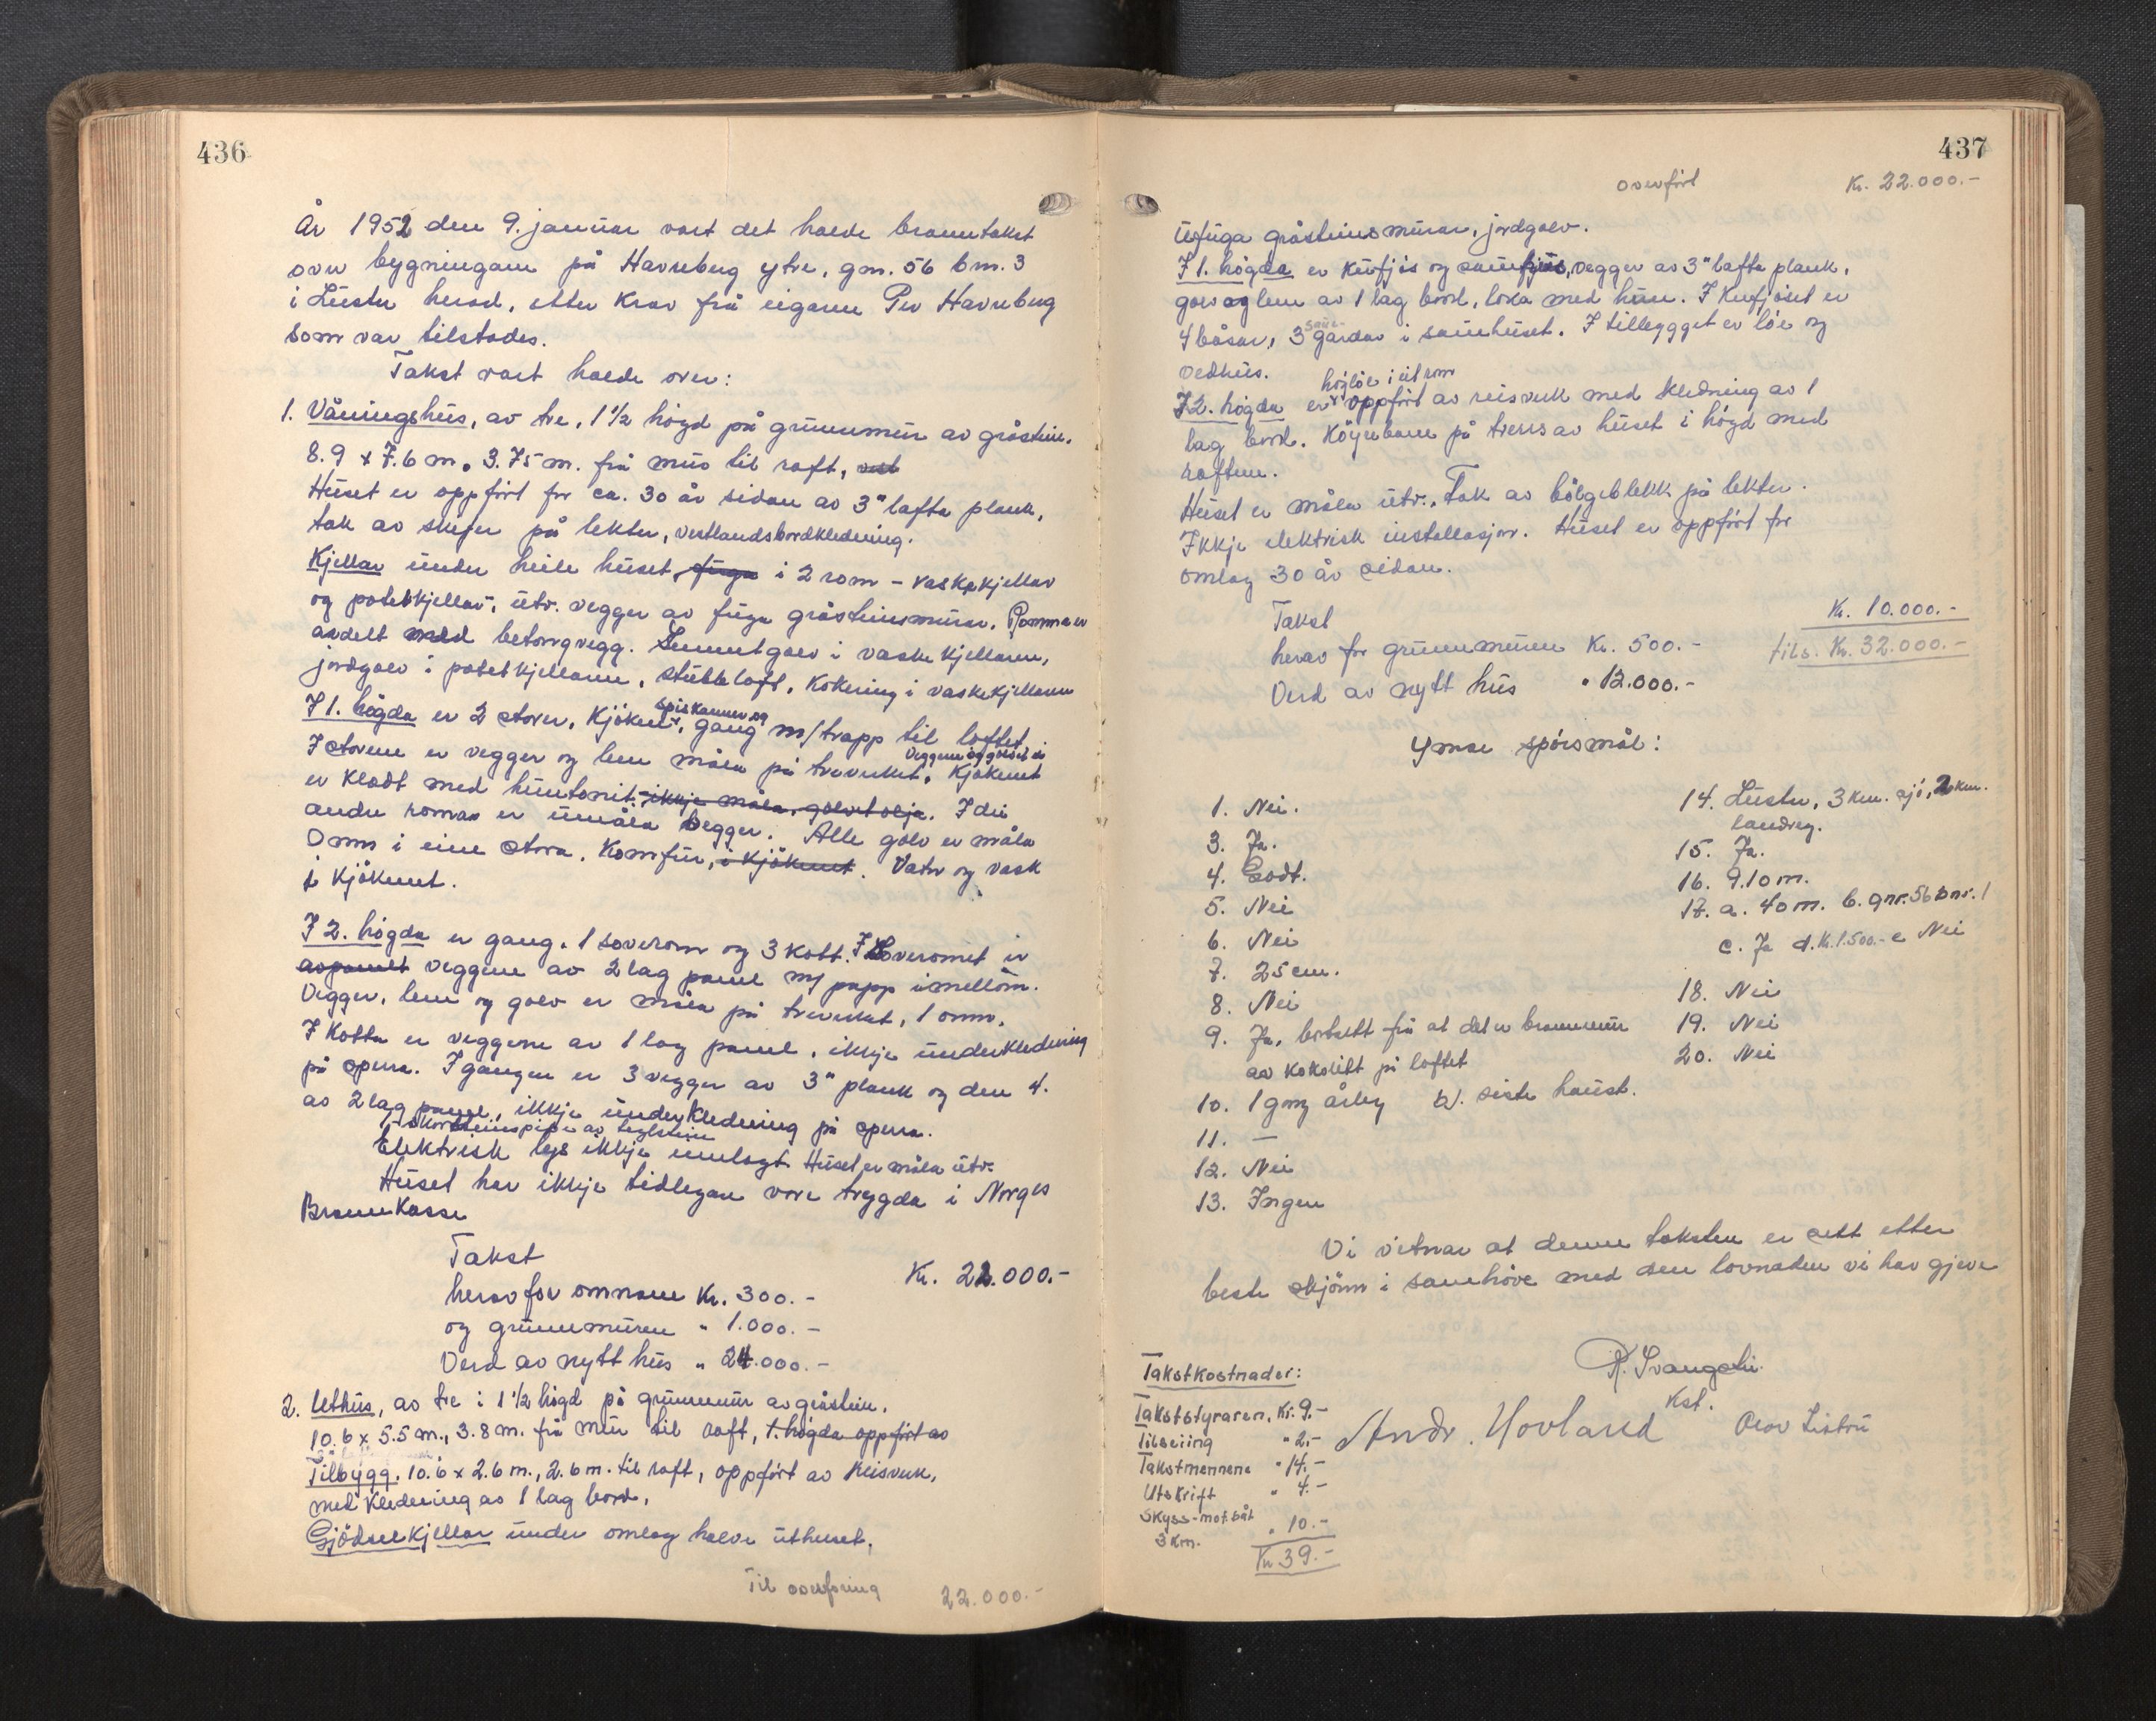 436
År 1952 den 9. januar vart det halde branntakst
over bygningane på Havreberg ytre, gnr. 56 bnr. 3
i Luster herad, etter krav frå eigaren Per Havreberg
som var tilstades.
Takst vart halde over:
1. Våningshus, av tre, 1 1/2 högd på grunnmur av gråstein.
8.9 x 7.6 m. 3.75 m. frå mur til raft,
Huset er oppfört for ca. 30 år sidan av 3" lafta plank,
tak av skifer på lekter, vestlandsbordkledning.
Kjellar under heile huset, fuga i 2 rom - vaskekjellar
og potetkjellar, utv. vegger av fuga gråsteinsmurar. Romma er
avdelt med betongvegg. Sementgolv i vaskekjellaren,
jordgolv i potetkjellaren, stubbloft. Kokering i vaskekjellaren
I 1. högda er 2 stover, kjöken, spiskammer og gang m/trapp til loftet.
I stovene er vegger og lem måla på treverket. Kjökenet
Veggene og golvet er
er kledt med huntonit, ikkje måla, golvet olja. I dei
andre romma er umåla vegger. Alle golv er måla
Omn i eine stova. Komfur, i kjökenet. Vatn og vask
i kjökenet.
I 2. högda er gang. 1 soverom og 3 kott. I soveromet er
avpanelt veggene av 2 lag panel m/ papp imellom.
Vegger, lem og golv er måla på treverket, 1 omn.
I kotta er veggene av 1 lag panel, ikkje underkledning
på sperra. I gangen er 3 vegger av 3" plank og den 4.
av 2 lag panel, ikkje underkledning på sperra.
1 skorsteinspipe av teglstein
Elektrisk lys ikkje innlagt. Huset er måla utv.
Huset har ikkje tidlegare vore trygda i Norges
Brannkasse
Takst
Kr. 22.000.-
herav for omnane Kr. 300.-
og grunnmuren " 1.000.-
Verd av nytt hus " 24.000.-
2. Uthus, av tre i 1 1/2 högd på grunnmur av gråstein.
10.6 x 5.5 m., 3.8 m. frå mur til raft, 1. högda oppfört av
Tilbygg. 10.6 x 2.6 m., 2.6 m. til raft, oppfört av reisverk,
med kledning av 1 lag bord.
Gjödselkjellar under omlag halve uthuset,
Til overföring 22.000.-
437
overfört Kr. 22.000.-
ufuga gråsteinsmurar, jordgolv.
I 1. högda er kufjös og sauefjös, vegger av 3" lafta plank,
golv og lem av 1 lag bord, loka med hun. I kufjöset er
4 båsar, 3 sauegardar i sauehuset. I tillegget er löe og
vedhus.
I 2. högda er höylöe i eit rom oppfört av reisverk med kledning av 1
lag bord. Köyrebane på tvers av huset i högd med
raftene.
Huset er måla utv., Tak av bölgeblekk på lekter.
Ikkje elektrisk installasjon. Huset er oppfört for
omlag 30 år sidan.
Takst Kr. 10.000.-
herav for grunnmuren Kr. 500.- tils. Kr. 32.000.-
Verd av nytt hus " 12.000.-
Ymse spörsmål:
1. Nei.
3. Ja.
4. Godt.
5. Nei
6. Nei
7. 25 cm.
8. Nei
9. Ja, bortsett frå at det er brannmur
av kokolitt på loftet
10. 1 gong årleg b). siste haust.
11. —
12. Nei
13. Ingen
14. Luster, 3 km. sjö, 2 km.
landveg.
15. Ja.
16. 9.10 m.
17. a. 40 m. b. gnr. 56 bnr. 1
c. Ja d. Kr. 1.500.- e Nei
18. Nei
19. Nei
20. Nei
Vi vitnar at denne taksten er sett etter
beste skjönn i samhöve med den lovnaden vi har gjeve
R. Svangstu
Kst.
Andr. Hovland
Takstkostnader:
Takststyraren, Kr. 9.-
Tilseiing " 2.-
Takstmennene " 14.-
Utskrift " 4.-
Skyss-mot.båt
3 km. " 10.-
Kr. 39.-